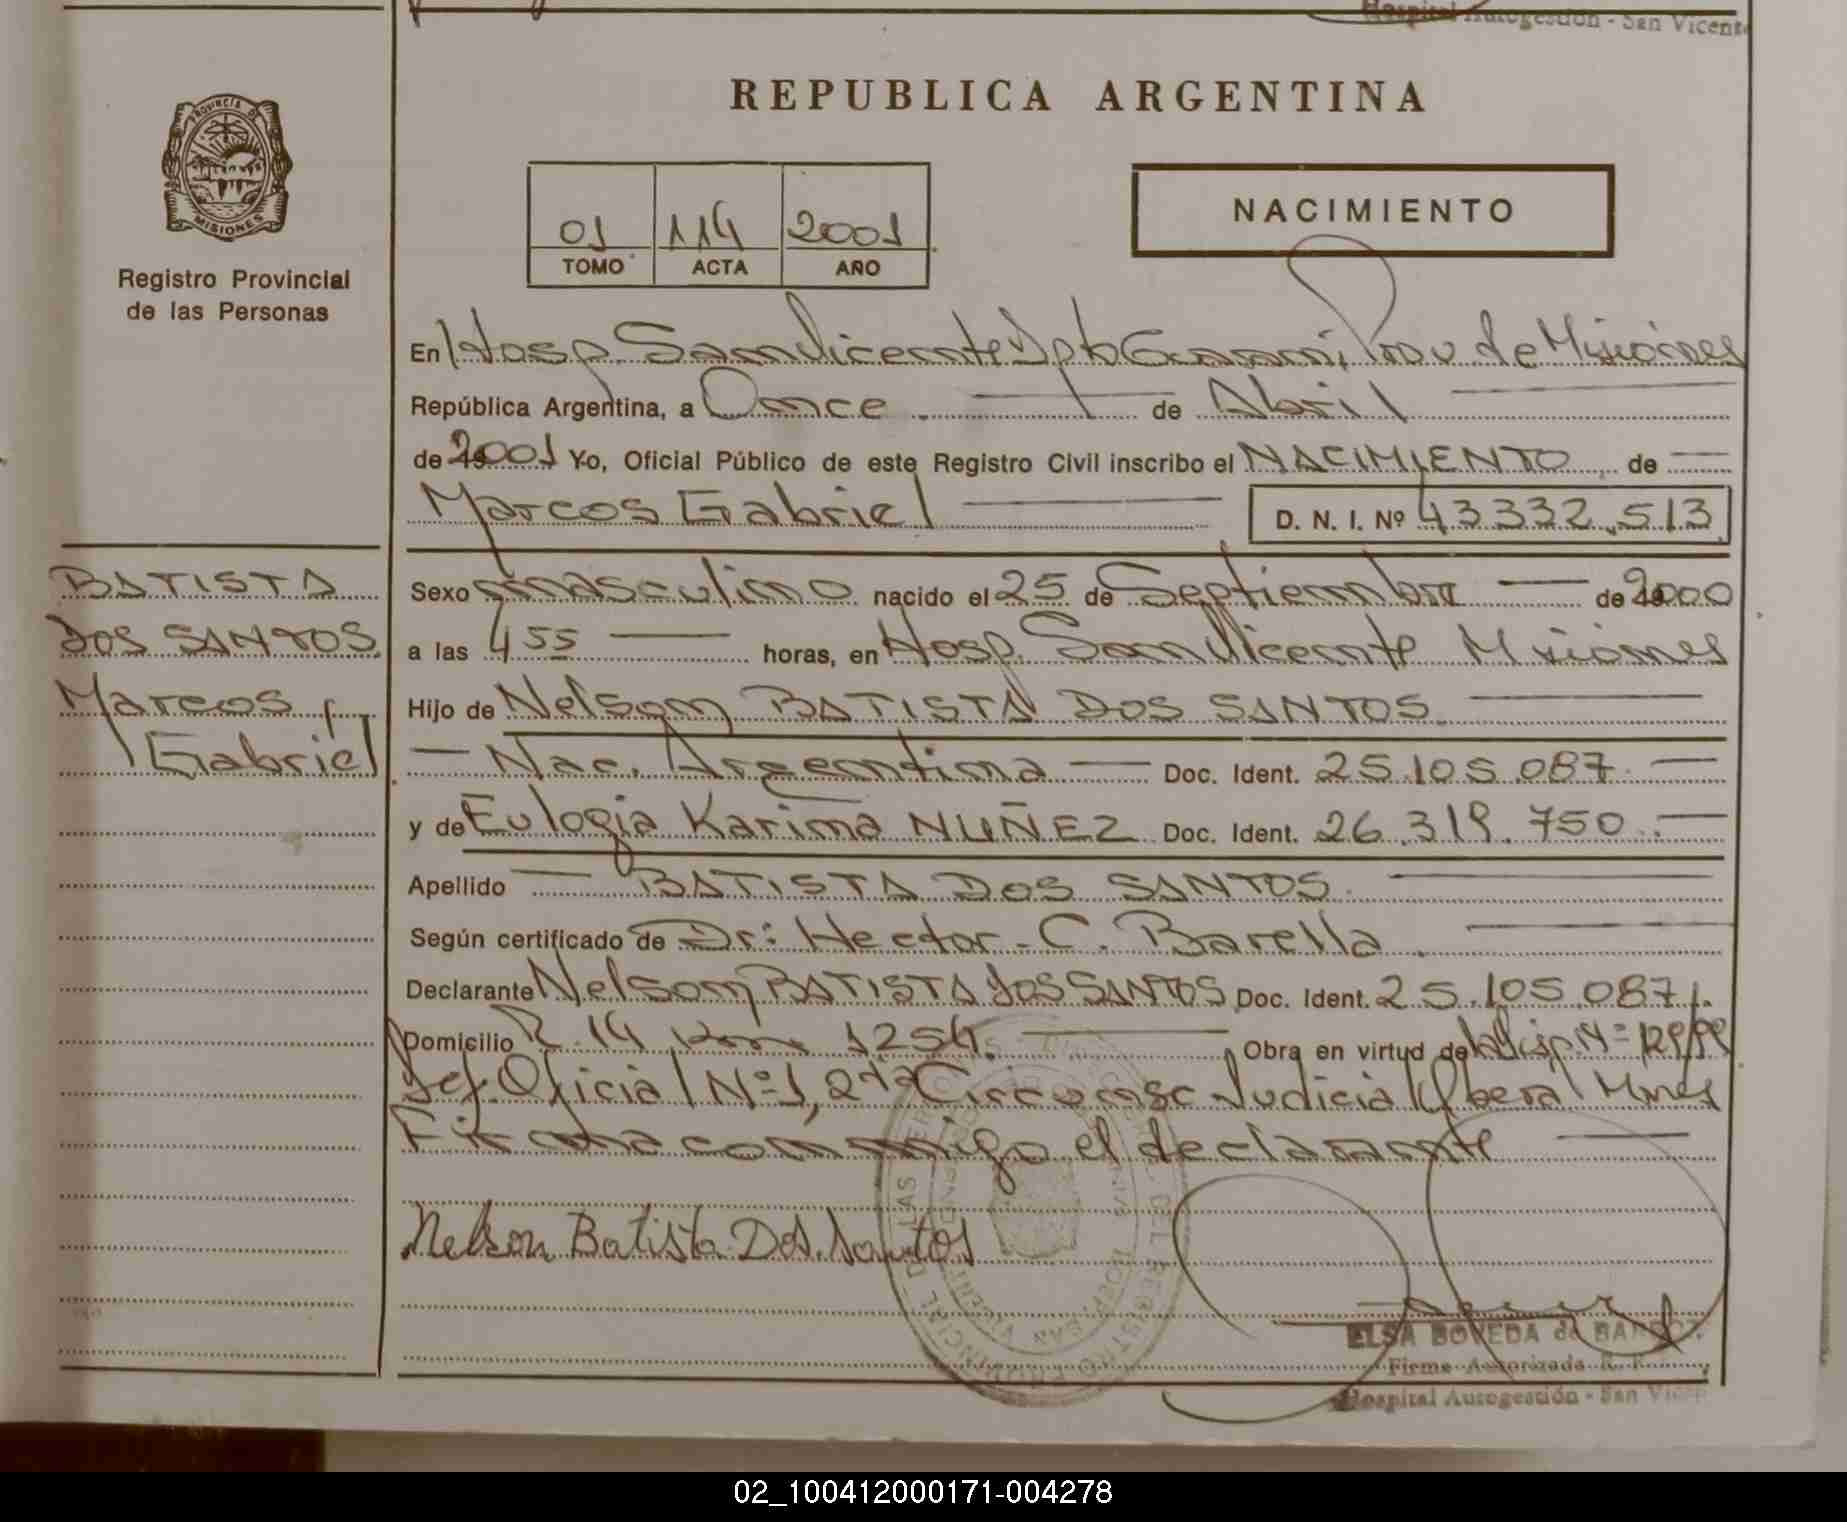 Hospital Autogestión - San Vicente
REPUBLICA ARGENTINA
PROVINCIA DE
MISIONES
Registro Provincial
de las Personas
01 114 2001
TOMO ACTA AÑO
NACIMIENTO
En Hosp. San Vicente Dpto Guarani, Prov de Misiones
República Argentina, a Once de Abril
de 2001 Yo, Oficial Público de este Registro Civil inscribo el NACIMIENTO de
Marcos Gabriel D. N. I. Nº 43332.513
BATISTA
DOS SANTOS,
Marcos
Gabriel
Sexo masculino nacido el 25 de Septiembre de 2000
a las 4 55 horas, en Hosp. San Vicente Misiones
Hijo de Nelson BATISTA DOS SANTOS
Nac. Argentina Doc. Ident. 25.105.087
y de Eulogia Karina NUÑEZ Doc. Ident. 26.319.750
Apellido BATISTA DOS SANTOS
Según certificado de Dr: Hector C. Barella
Declarante Nelson BATISTA DOS SANTOS Doc. Ident. 25.105.087
Domicilio R. 14 Km 1254. Obra en virtud de Disp. Nº
Def. Oficial Nº 1, 2da Circunsc Judicial Obera Mnes
Firma conmigo el declarante
Nelson Batista Dos Santos
ELSA BOVEDA de
Firma Autorizada R. P.
Hospital Autogestión - San Vicen
02_100412000171-004278